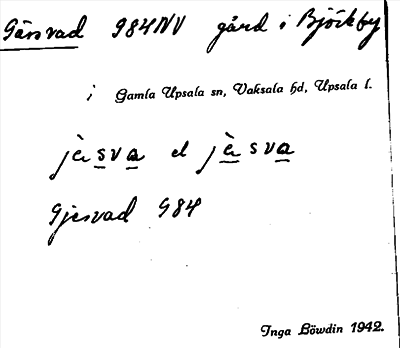 Gärsvad 984NV gård i Björkby
i Gamla Upsala sn, Vaksala hd, Upsala l.
jæ̀sva el jæ̀sva
Gjesvad G84
Inga Löwdin 1942.